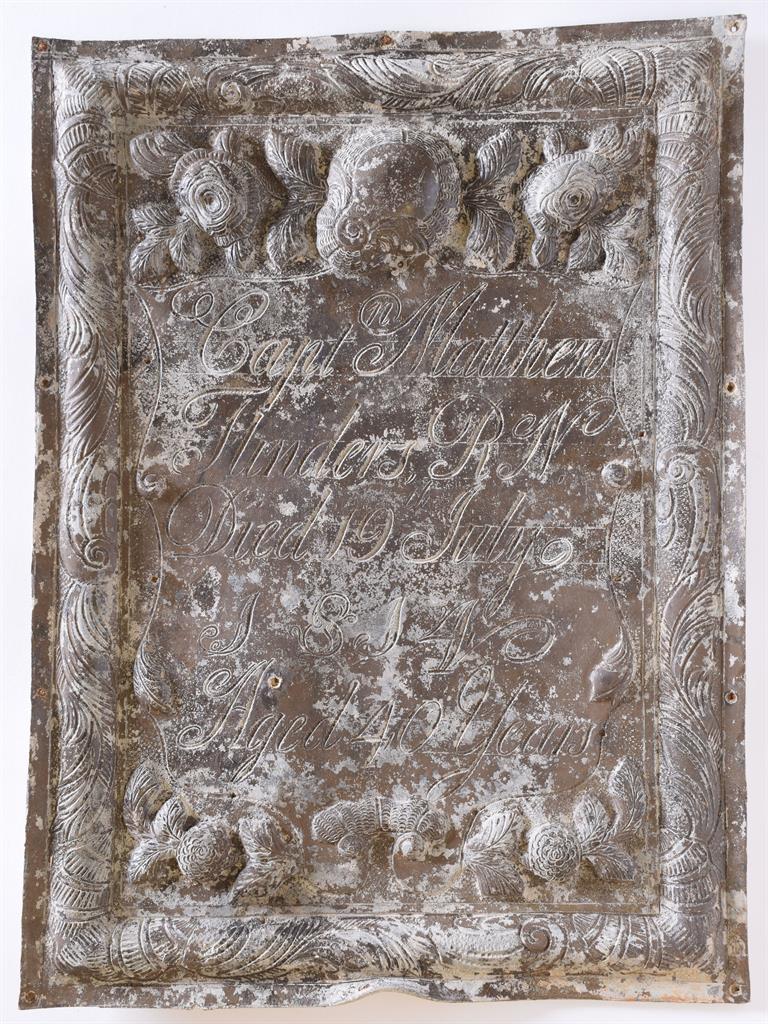 Captn Matthew
Flinders, R N
Died 19th July
1814
Aged 40 Years